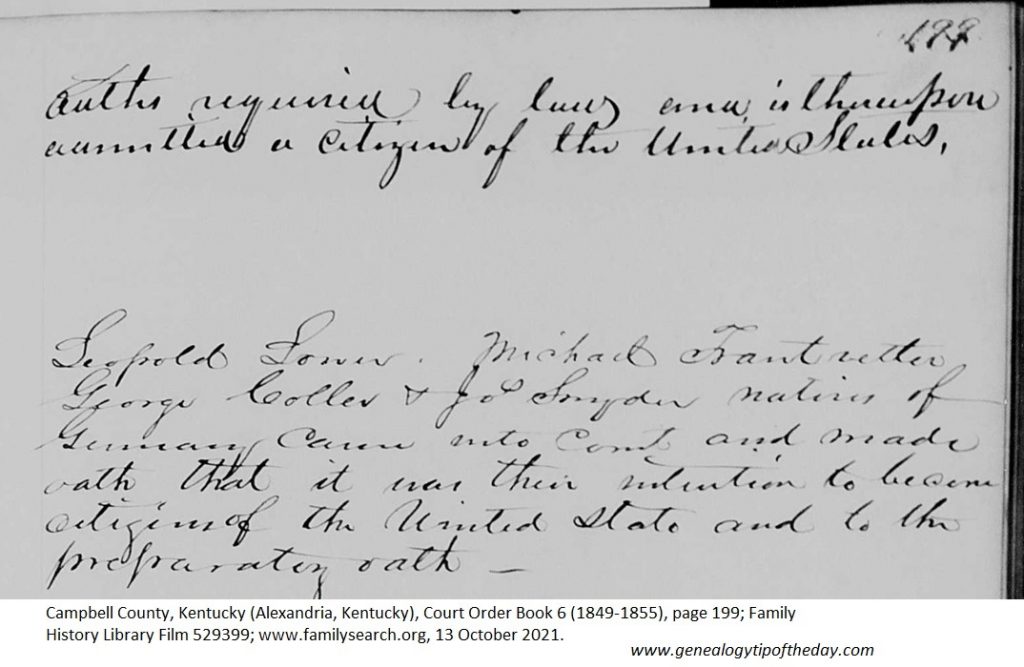 199
oaths required by law and is thereupon
admitted a citizen of the United States,
Leopold Lower. Michael Frantretter
George Coller & Jos Snyder natives of
Germany Came into Court and made
oath that it was their intention to become
citizens of the United State and to the
preparatory oath —
Campbell County, Kentucky (Alexandria, Kentucky), Court Order Book 6 (1849-1855), page 199; Family
History Library Film 529399; www.familysearch.org, 13 October 2021.
www.genealogytipoftheday.com